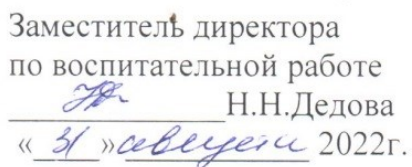 Заместитель директора
по воспитательной работе
Н.Н.Дедова
« 31 » августа 2022г.